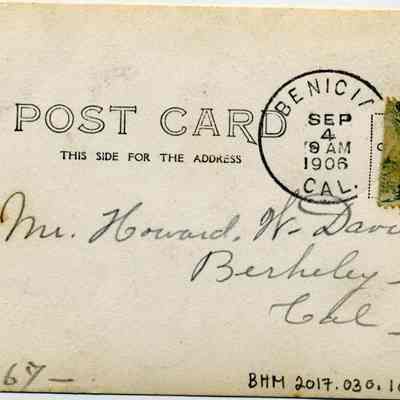 POST CARD
THIS SIDE FOR THE ADDRESS
BENICIA
SEP
4
9 AM
1906
CAL.
Mr. Howard. W. Davi
Berkeley
Cal
67 —
BHM 2017.030.1